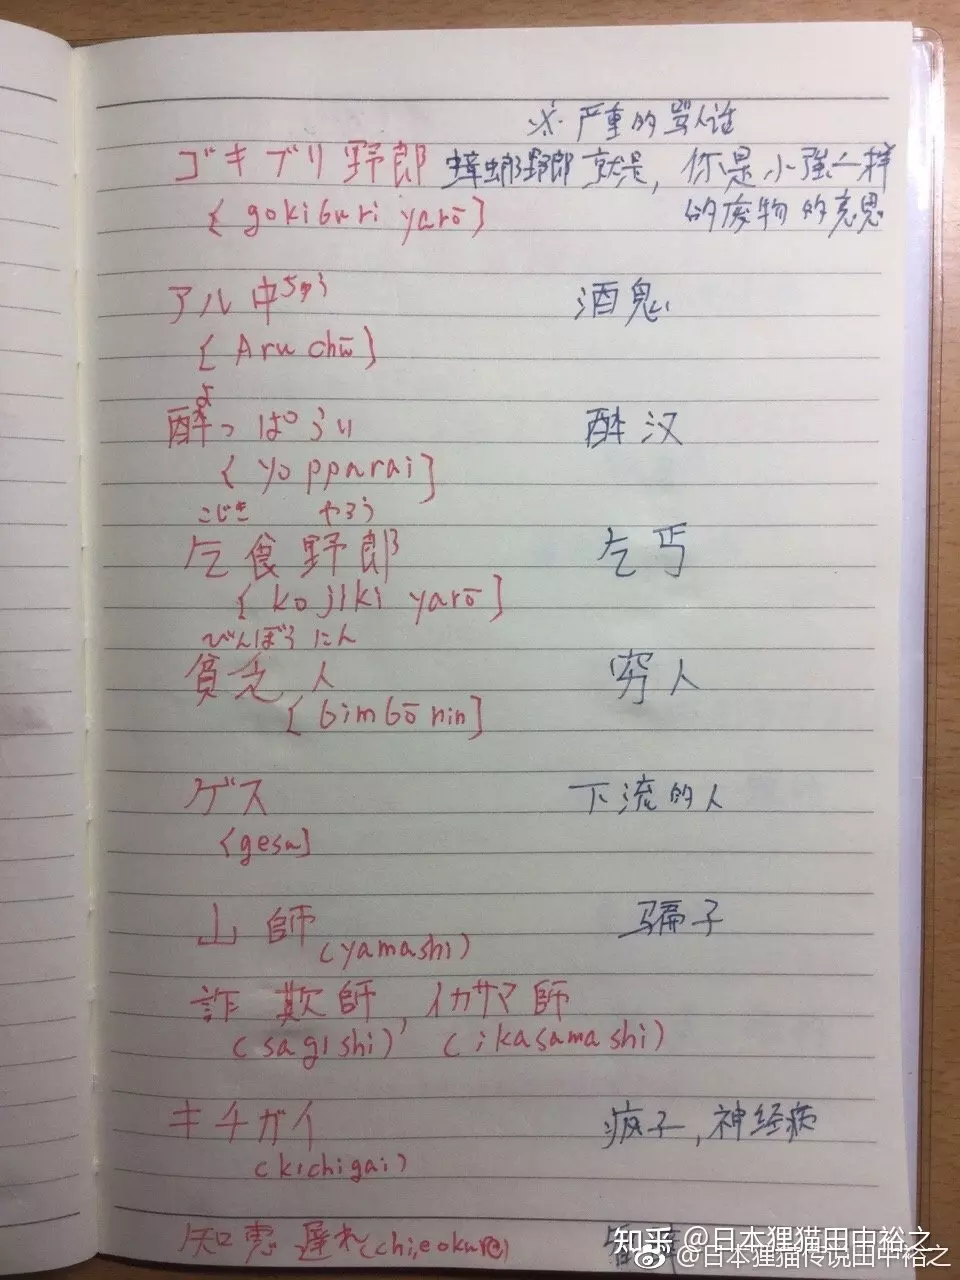 ※ 严重的骂人话
ゴキブリ野郎 蟑螂野郎 就是, 你是小強一样
[gokiburi yarō] 的废物的意思
アル中ちゅう 酒鬼
[Aru chū]
よ
酔っぱらい 醉汉
[yo pparai]
こじき やろう
乞食野郎 乞丐
[kojiki yarō]
びんぼう にん
貧乏人 穷人
[bimbō nin]
ゲス 下流的人
[gesu]
山師 骗子
(yamashi)
詐欺師, イカサマ師
(sagishi) (ikasamashi)
キチガイ 疯子, 神经病
(kichigai)
知恵遅れ (chieokure)
知乎 @日本狸猫田中裕之
@日本狸猫传说田中裕之